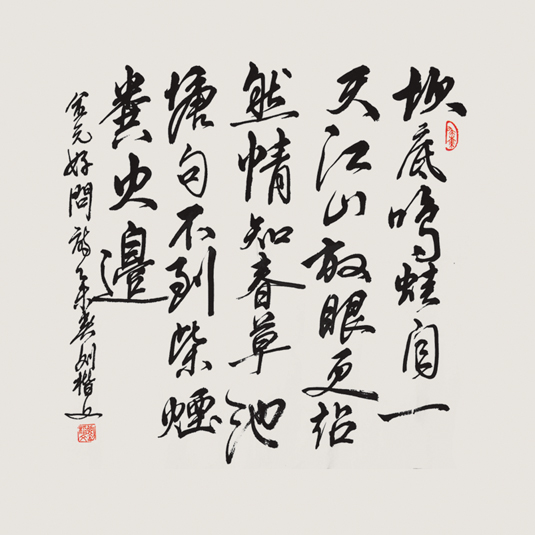 坎底鳴蛙自一
天江山放眼更超
然情知春草池
塘句不到柴煙
糞火邊
金元好問詩 刘楷